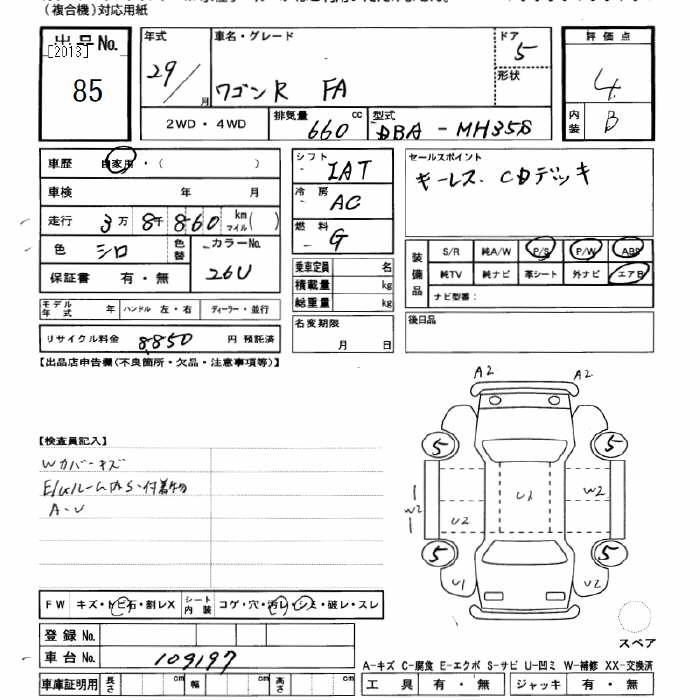 （複合機）対応用紙
出品No.
[2013]
85
年式
29/
月
車名・グレード
ワゴンR FA
ドア
5
形状
評価点
4
内装
B
2WD・4WD
排気量
660 cc
型式
DBA-MH35S
車歴
自家用・( )
車検 年 月
走行 3万 8千 860 km マイル( )
色 シロ
色替
カラーNo.
26U
保証書 有・無
シフト
IAT
冷房
AC
燃料
G
セールスポイント
キーレス. CDデッキ
装備品
S/R 純A/W P/S P/W ABS
純TV 純ナビ 革シート 外ナビ エアB
ナビ型番：
乗車定員 名
積載量 kg
総重量 kg
モデル年式 年
ハンドル 左・右
ディーラー・並行
名変期限
月 日
後日品
リサイクル料金 8,850 円 預託済
【出品店申告欄(不良箇所・欠品・注意事項等)】
A2 A2
5 5
【検査員記入】
Wカバーキズ
E/Gルーム内S・付着物
A・U
W2
U2
U1
W2
5 5
U1
U2
FW キズ・トビ石・割レX
シート内装
コゲ・穴・汚レ・シミ・破レ・スレ
登録No.
車台No. 109197
スペア
A-キズ C-腐食 E-エクボ S-サビ U-凹ミ W-補修 XX-交換済
車庫証明用 長さ cm 幅 cm 高さ cm
工具 有・無 ジャッキ 有・無